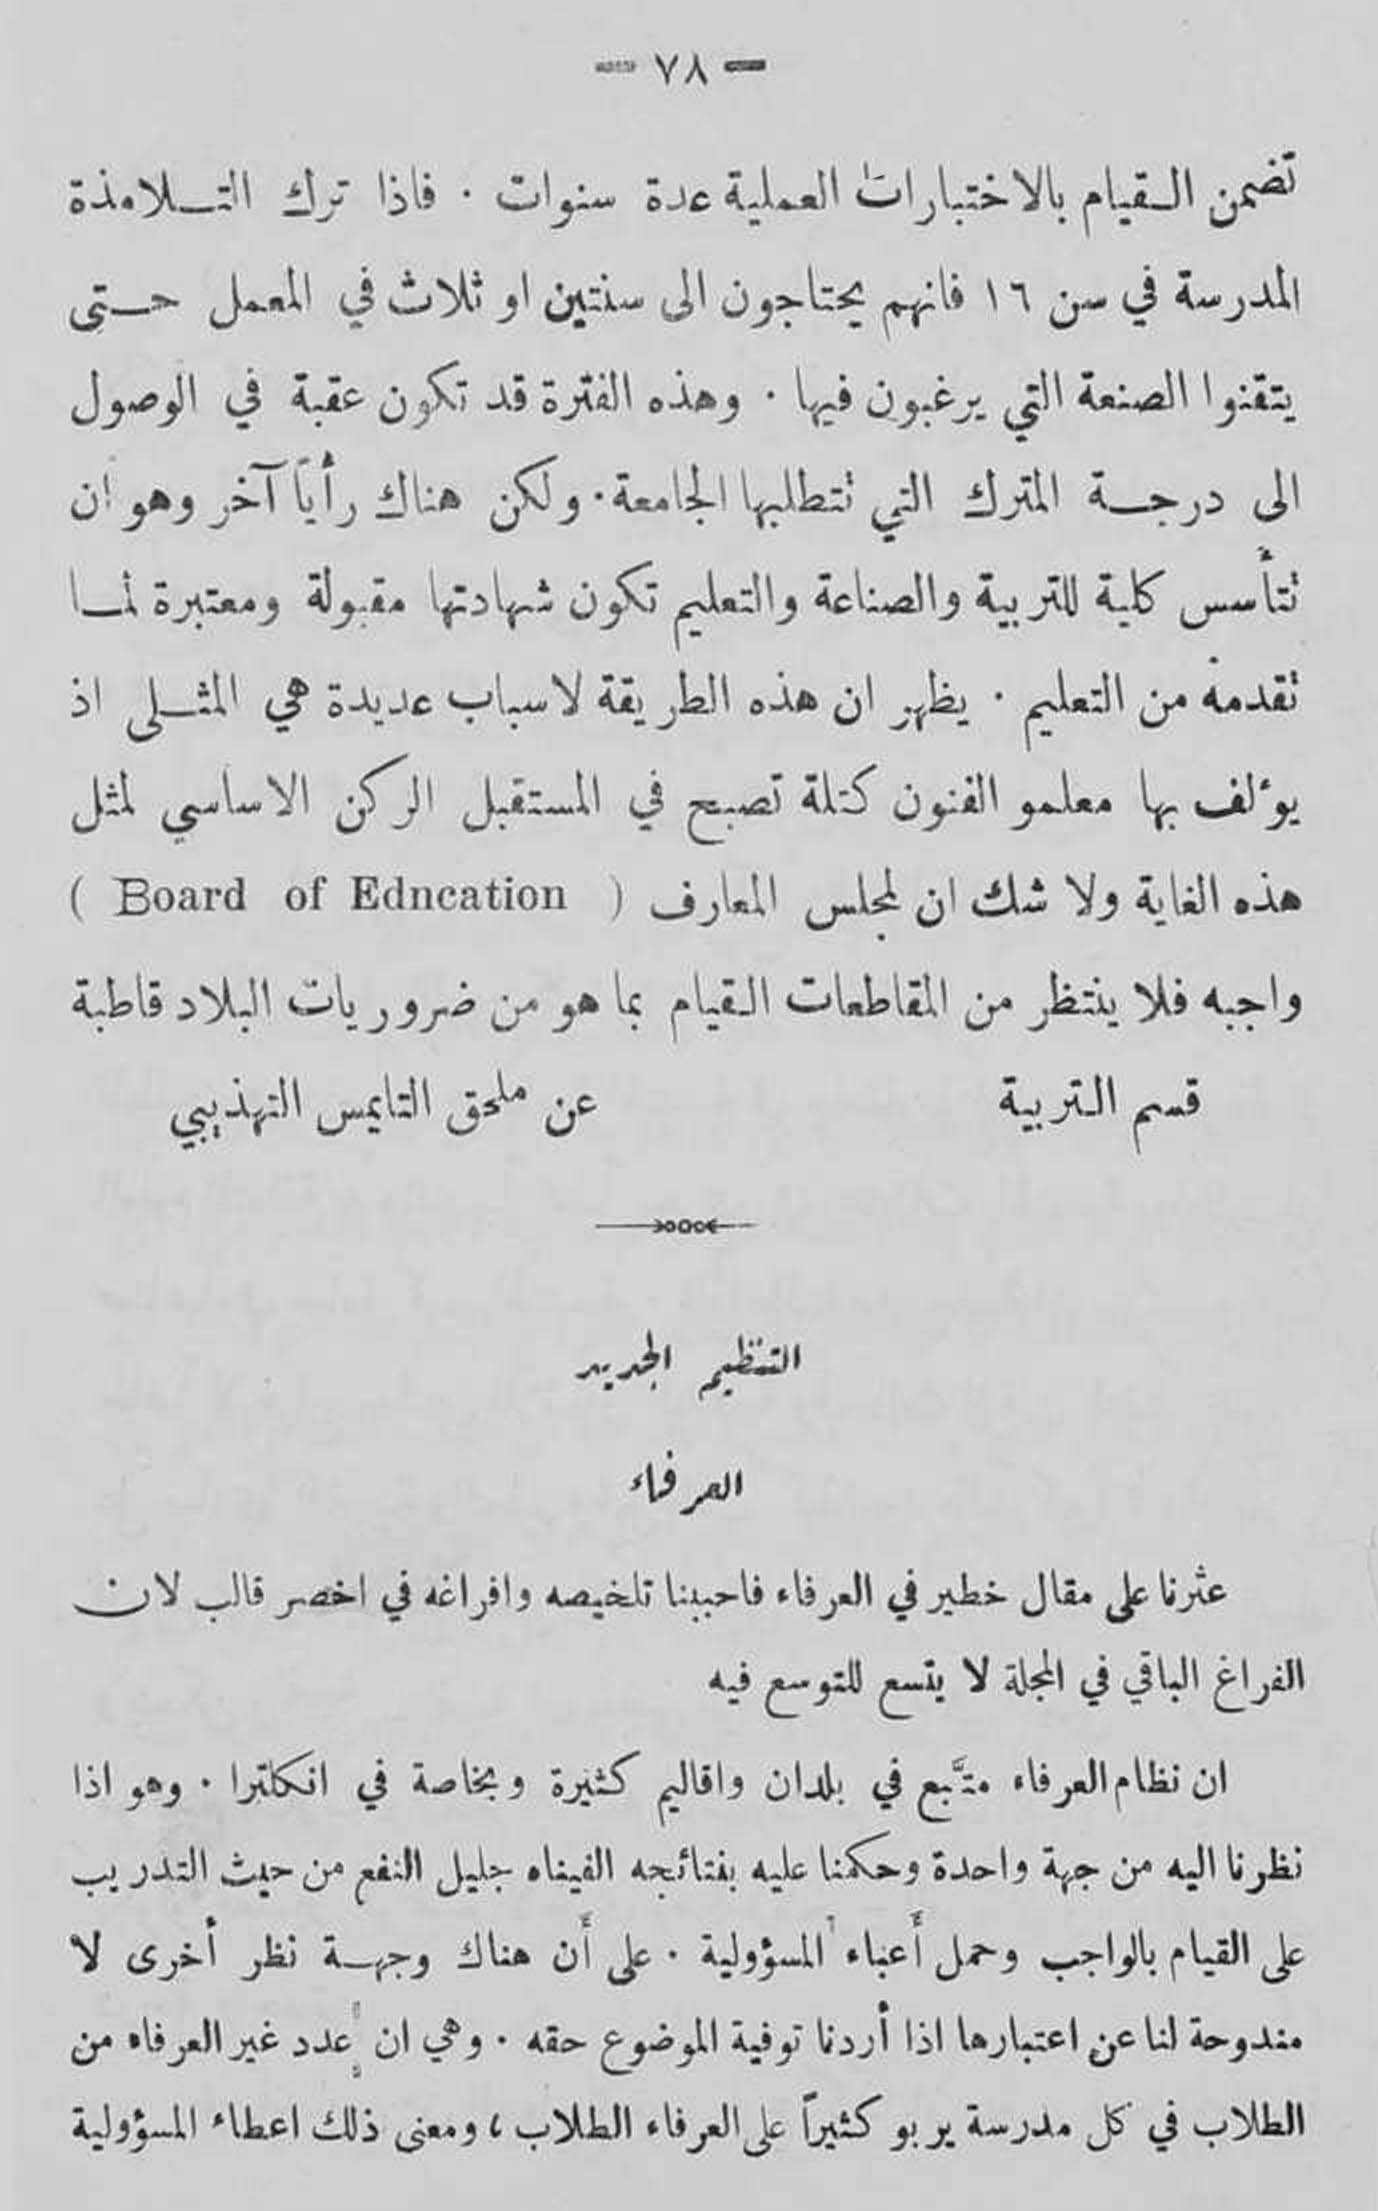 — ٧٨ —
تضمن القيام بالاختبارات العملية عدة سنوات . فاذا ترك التلامذة
المدرسة في سن ١٦ فانهم يحتاجون الى سنتين او ثلاث في المعمل حتى
يتقنوا الصنعة التي يرغبون فيها . وهذه الفترة قد تكون عقبة في الوصول
الى درجة المترك التي تتطلبها الجامعة . ولكن هناك رأياً آخر وهو ان
تتأسس كلية للتربية والصناعة والتعليم تكون شهادتها مقبولة ومعتبرة لما
تقدمه من التعليم . يظهر ان هذه الطريقة لاسباب عديدة هي المثلى اذ
يؤلف بها معلمو الفنون كتلة تصبح في المستقبل الركن الاساسي لمثل
هذه الغاية ولا شك ان لمجلس المعارف ( Board of Edncation )
واجبه فلا ينتظر من المقاطعات القيام بما هو من ضروريات البلاد قاطبة
قسم التربية عن ملحق التايمس التهذيبي
التنظيم الجديد
العرفاء
عثرنا على مقال خطير في العرفاء فاحببنا تلخيصه وافراغه في اخصر قالب لان
الفراغ الباقي في المجلة لا يتسع للتوسع فيه
ان نظام العرفاء متَّبع في بلدان واقاليم كثيرة وبخاصة في انكلترا . وهو اذا
نظرنا اليه من جهة واحدة وحكمنا عليه بنتائجه الفيناه جليل النفع من حيث التدريب
على القيام بالواجب وحمل أَعباء المسؤولية . على أَن هناك وجهة نظر أخرى لا
مندوحة لنا عن اعتبارها اذا أردنا توفية الموضوع حقه . وهي ان عدد غير العرفاء من
الطلاب في كل مدرسة يربو كثيراً على العرفاء الطلاب ، ومعنى ذلك اعطاء المسؤولية